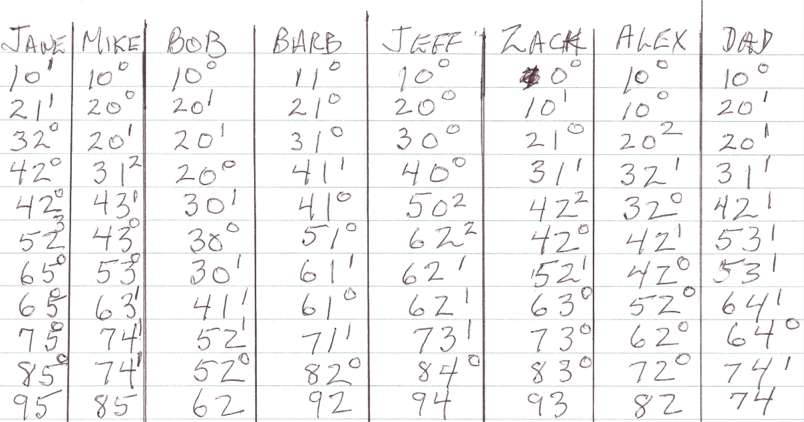 JANE MIKE BOB BARB JEFF ZACK ALEX DAD
10¹ 10⁰ 10⁰ 11⁰ 10⁰ 0⁰ 10⁰ 10⁰
21¹ 20⁰ 20¹ 21⁰ 20⁰ 10¹ 10⁰ 20¹
32⁰ 20¹ 20¹ 31⁰ 30⁰ 21⁰ 20² 20¹
42⁰ 31² 20⁰ 41¹ 40⁰ 31¹ 32¹ 31¹
42⁰ 43¹ 30¹ 41⁰ 50² 42² 32⁰ 42¹
52³ 43⁰ 30⁰ 51⁰ 62² 42⁰ 42¹ 53¹
65⁰ 53⁰ 30¹ 61¹ 62¹ 52¹ 42⁰ 53¹
65⁰ 63¹ 41¹ 61⁰ 62¹ 63⁰ 52⁰ 64¹
75⁰ 74¹ 52¹ 71¹ 73¹ 73⁰ 62⁰ 64⁰
85⁰ 74¹ 52⁰ 82⁰ 84⁰ 83⁰ 72⁰ 74¹
95 85 62 92 94 93 82 74